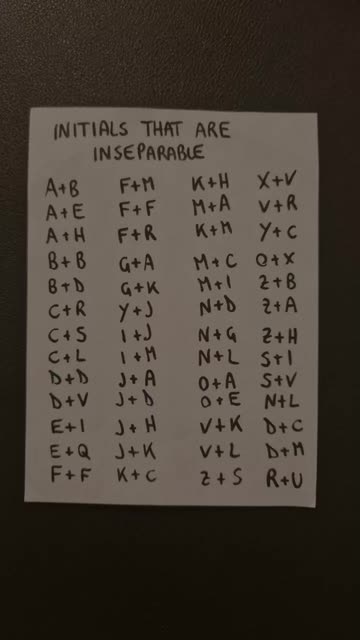 INITIALS THAT ARE
INSEPARABLE
A+B
A+E
A+H
B+B
B+D
C+R
C+S
C+L
D+D
D+V
E+I
E+Q
F+F
F+M
F+F
F+R
G+A
G+K
Y+J
I+J
I+M
J+A
J+D
J+H
J+K
K+C
K+H
M+A
K+M
M+C
M+I
N+D
N+G
N+L
O+A
O+E
V+K
V+L
Z+S
X+V
V+R
Y+C
O+X
Z+B
Z+A
Z+H
S+I
S+V
N+L
D+C
D+M
R+U